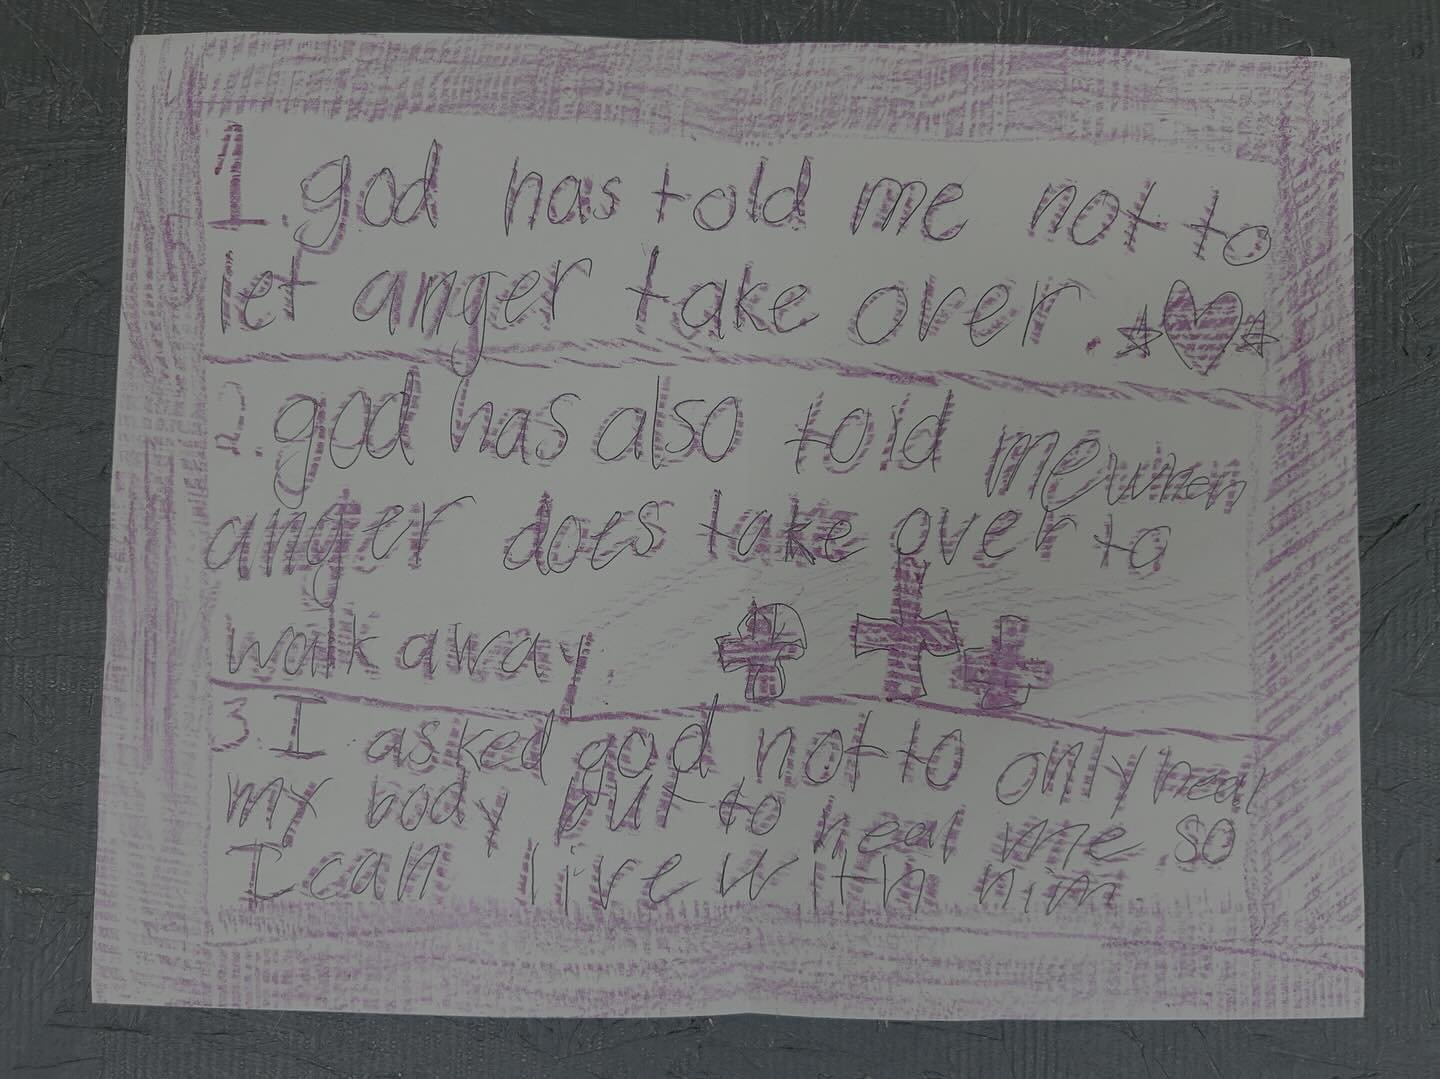 1. god has told me not to
let anger take over.
2. god has also told me when
anger does take over to
walk away
3. I asked god not to only heal
my body but to heal me so
I can live with him